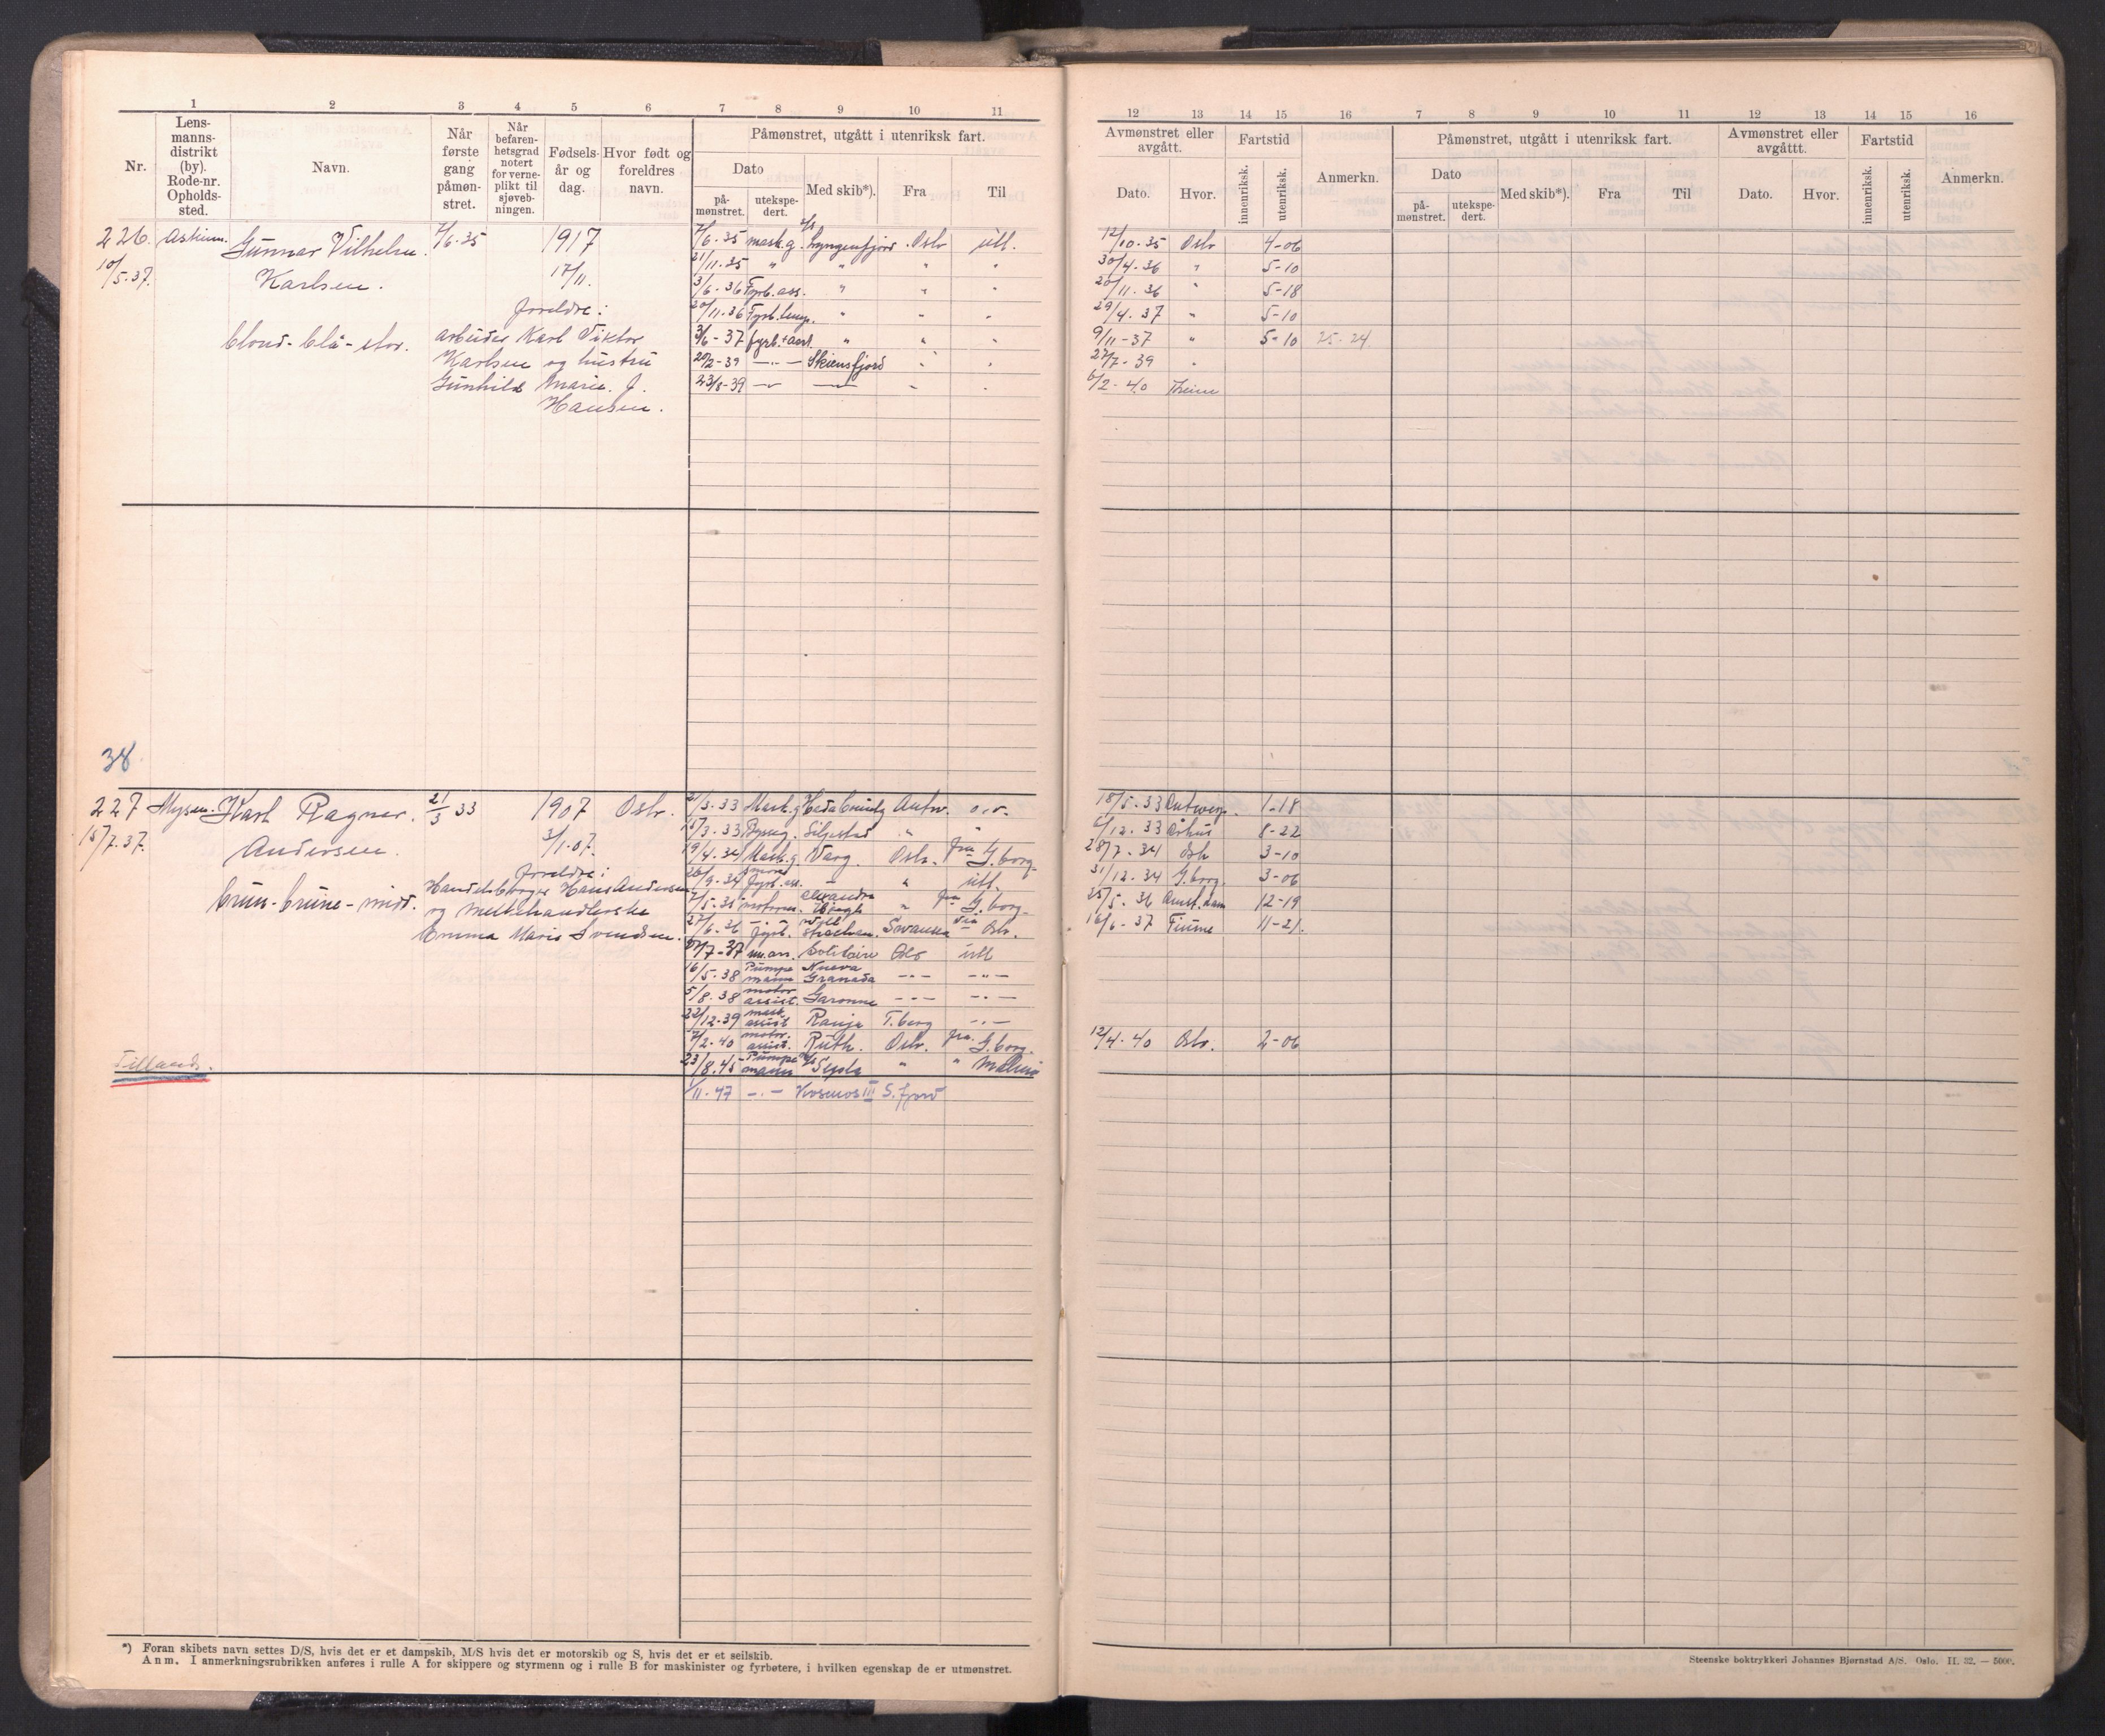 1 2 3 4 5 6 7 8 9 10 11
Nr.
Lens-
manns-
distrikt
(by).
Rode-nr.
Opholds-
sted.
Navn.
Når
første
gang
påmøn-
stret.
Når
befaren-
hetsgrad
notert
for verne-
plikt til
sjøveb-
ningen.
Fødsels-
år og
dag.
Hvor født og
foreldres
navn.
Påmønstret, utgått i utenriksk fart.
Dato
på-
mønstret.
utekspe-
dert.
Med skib*).
Fra
Til
226. Askim. Gunnar Vilhelm 7/6.35 1917 7/6.35 mask.g. Lyngenfjord Oslo utl.
10/5.37. Karlsen. 17/11. 21/11.35 " " " "
3/6.36 Fyrb.ass. " " "
Foreldre: 20/11.36 Fyrb.lemp. " " "
blond-blå-stor. arbeider Karl Viktor 3/6-37 fyrb.+ass. " " "
Karlsen og hustru 20/2-39 —"— Skiensfjord " "
Gunhild Marie J. 23/8-39 —"— —"— " "
Hansen.
38
227 Mysen. Karl Ragnar. 21/3 33 1907 Oslo. 21/3.33 Mask.g Antw. o.v.
15/7.37. Andersen. 3/1.07. 15/3.33 Bysseg. Siljestad " "
19/4.34 Mask.g. Varg. Oslo. fra G.borg.
Foreldre: 20/9.34 Fyrb.ass. — " utl.
brun-brune-midd. Handelsborger Hans Andersen 7/5.35 motorm. " fra G.borg.
og melkehandlerske 27/6.36 fyrb. Swansea via Oslo.
Emma Marie Svendsen. 27/7-37 m.ass. Solitaire Oslo utl
16/5.38 Pumpemann Nueva Granada —"— —"—
5/8.38 motorassist. Garonne —"— —"—
22/12.39 mask.assist Ranja T.berg —"—
7/2.40 motor.assist. Ruth. Oslo. fra G.borg.
Tillands. 23/8.45 Pumpemann " " Malmø
1/11.47 —"— Kosmos III S.fjord
*) Foran skibets navn settes D/S, hvis det er et dampskib, M/S hvis det er motorskib og S, hvis det er et seilskib.
Anm. I anmerkningsrubrikken anføres i rulle A for skippere og styrmenn og i rulle B for maskinister og fyrbøtere, i hvilken egenskap de er utmønstret.
12 13 14 15 16 7 8 9 10 11 12 13 14 15 16
Avmønstret eller
avgått.
Dato.
Hvor.
Fartstid
innenriksk.
utenriksk.
Anmerkn.
Påmønstret, utgått i utenriksk fart.
Dato
på-
mønstret.
utekspe-
dert.
Med skib*).
Fra
Til
Avmønstret eller
avgåttt.
Dato.
Hvor.
Fartstid
innenriksk.
utenriksk.
Anmerkn.
12/10.35 Oslo 4-06
30/4.36 " 5-10
20/11.36 " 5-18
29/4.37 " 5-10
9/11-37 " 5-10 25-24.
27/7-39 "
6/2-40 Trheim
18/5.33 Antwerp. 1-18
6/12.33 Århus 8-22
28/7.34 Oslo 3-10
31/12.34 G.borg. 3-06
25/5.36 Amst.dam 12-19
16/6-37 Fiume 11-21.
12/4.40 Oslo. 2-06
Steenske boktrykkeri Johannes Bjørnstad A/S. Oslo. II. 32. — 5000.